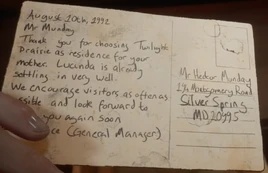 August 10th, 1992
Mr Munday
Thank you for choosing Twilight
Prairie as residence for your
mother. Lucinda is already
settling in very well.
We encourage visitors as often as
and look forward to
you again soon
(General Manager)
Mr Hector Munday
Montgomery Road
Silver Spring
MD 20995